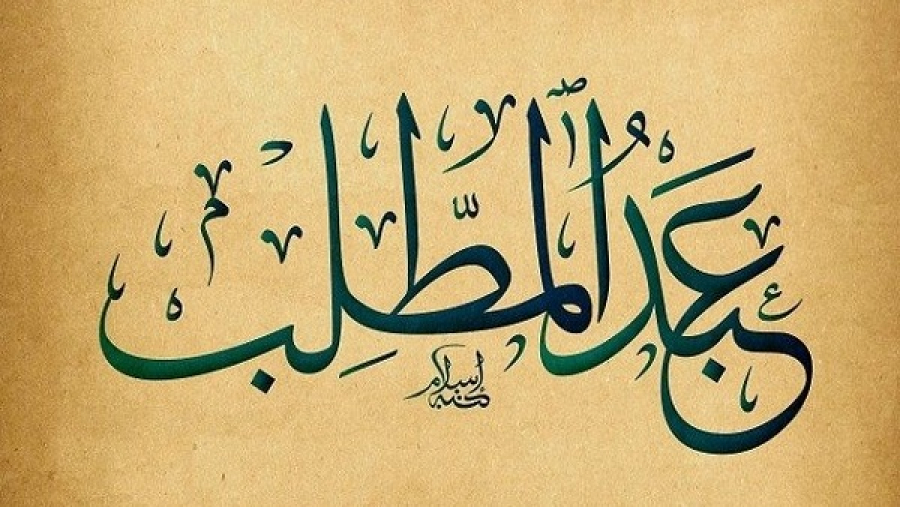 عَبدُ المُطَّلِب
كتبه إسلام